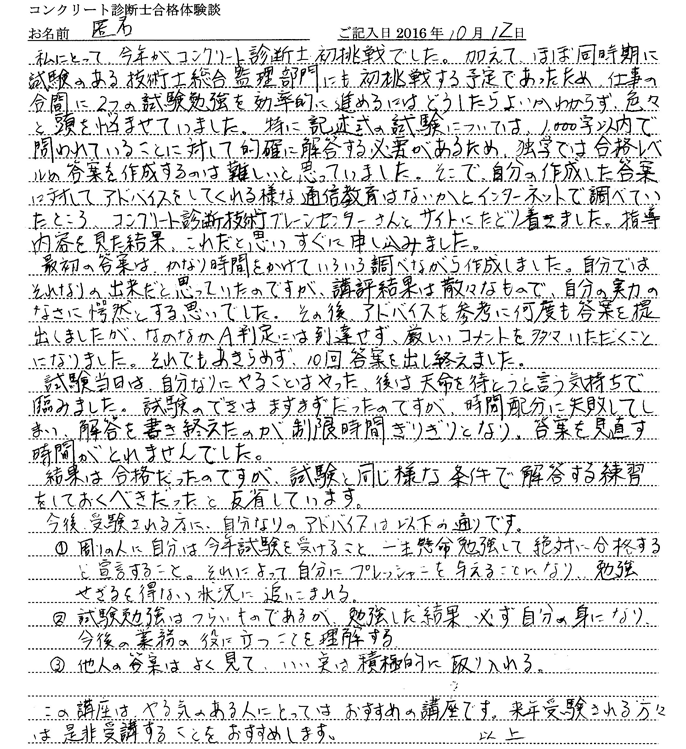 コンクリート診断士合格体験談
お名前 匿名 ご記入日2016年10月12日
私にとって、今年がコンクリート診断士初挑戦でした。加えて、ほぼ同時期に
試験のある技術士総合監理部門にも初挑戦する予定であったため、仕事の
合間に2つの試験勉強を効率的に進めるにはどうしたらよいかわからず、色々
と頭を悩ませていました。特に記述式の試験については、1,000字以内で
問われていることに対して的確に解答する必要があるため、独学では合格レベ
ルの答案を作成するのは難しいと思っていました。そこで、自分の作成した答案
に対してアドバイスをしてくれる様な通信教育はないかとインターネットで調べてい
たところ、コンクリート診断技術ブレーンセンターさんとサイトにたどり着きました。指導
内容を見た結果、これだと思いすぐに申し込みました。
最初の答案は、かなり時間をかけていろいろ調べながら作成しました。自分では
それなりの出来だと思っていたのですが、講評結果は散々なもので、自分の実力の
なさに愕然とする思いでした。その後、アドバイスを参考に何度も答案を提
出しましたが、なかなかA判定には到達せず、厳しいコメントを多々いただくこと
になりました。それでもあきらめず、10回答案を出し終えました。
試験当日は、自分なりにやることはやった、後は天命を待とうと言う気持ちで
臨みました。試験のできはまずまずだったのですが、時間配分に失敗してし
まい、解答を書き終えたのが制限時間ぎりぎりとなり、答案を見直す
時間がとれませんでした。
結果は合格だったのですが、試験と同じ様な条件で解答する練習
をしておくべきだったと反省しています。
今後、受験される方に、自分なりのアドバイスは以下の通りです。
① 周りの人に自分は今年試験を受けること、一生懸命勉強して絶対に合格する
と宣言すること。それによって自分にプレッシャーを与えることになり、勉強
せざるを得ない状況に追いこまれる。
② 試験勉強はつらいものであるが、勉強した結果、必ず自分の身になり、
今後の業務の役に立つことを理解する
③ 他人の答案はよく見て、いい実は積極的に取り入れる。
この講座は、やる気のある人にとってはおすすめの講座です。来年受験される方々
は是非受講することをおすすめします。 以上